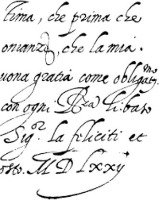 tima, che prima che
onuanzo, che la mia
uona gratia come obligatmo
con ogni li baro
Sigr. la feliciti et
MDLXXIJ